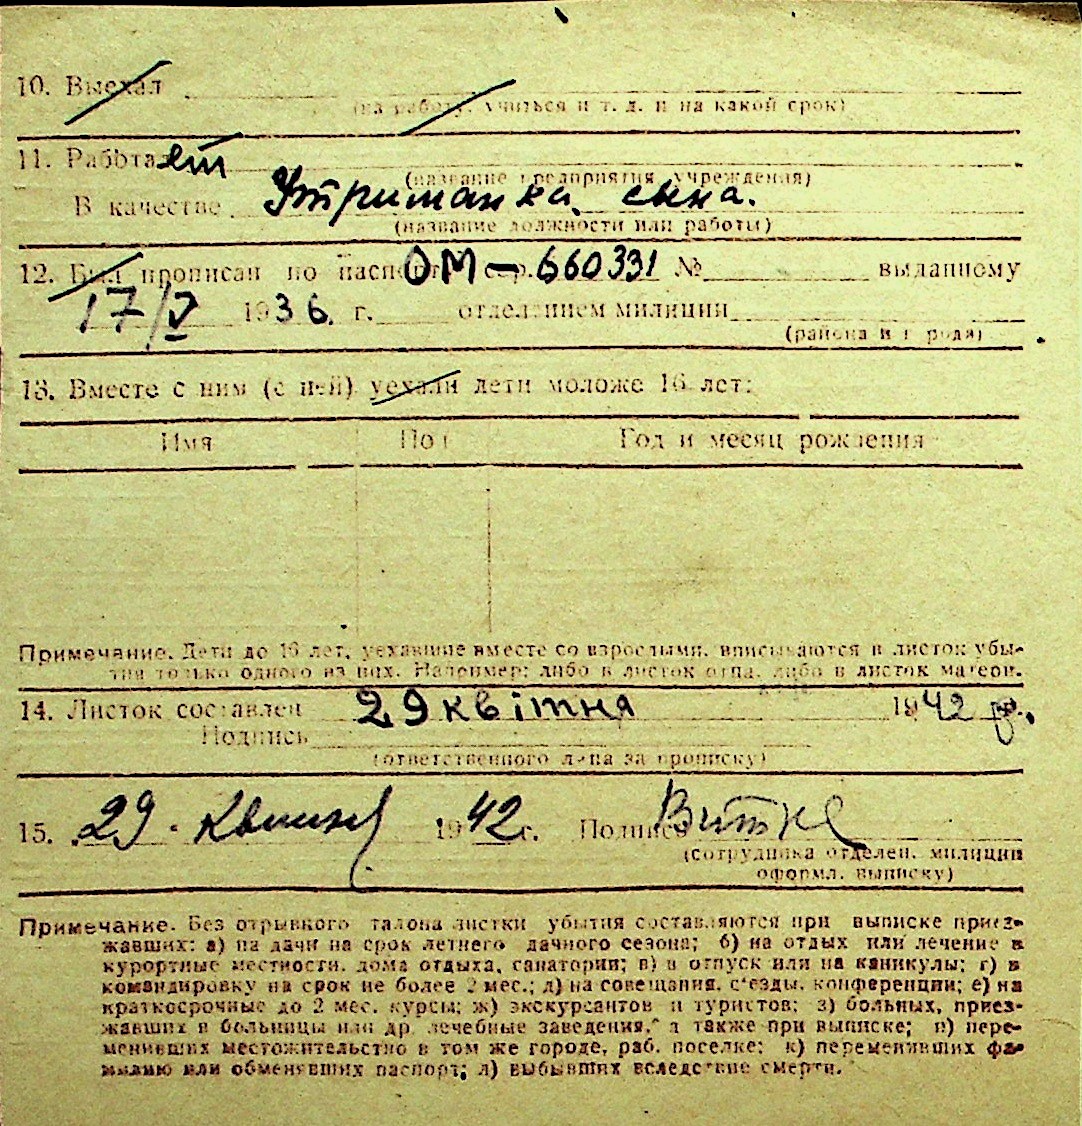 10. Выехал
(на работу, учиться и т. д. и на какой срок)
11. Работает
(название предприятия, учреждения)
В качестве Утриманка сина.
(название должности или работы)
12. Был прописан по паспорт ОМ — сер. 660331 № выданному
17/V 1936. г. отделением милиции
(района и города)
13. Вместе с ним (с ней) уехали дети моложе 16 лет:
Имя Пол Год и месяц рождения
Примечание. Дети до 16 лет, уехавшие вместе со взрослыми, вписываются в листок убы-
тия только одного из них. Например: либо в листок отца, либо в листок матери.
14. Листок составлен 29 квітня 1942 р.
Подпись
(ответственного лица за прописку)
15. 29 квітня 1942 г. Подпись
(сотрудника отделен. милиции
оформл. выписку)
Примечание. Без отрывного талона листки убытия составляются при выписке приез-
жавших: а) на дачи на срок летнего дачного сезона; б) на отдых или лечение в
курортные местности, дома отдыха, санатории; в) в отпуск или на каникулы; г) в
командировку на срок не более 2 мес.; д) на совещания, с'езды, конференции; е) на
краткосрочные до 2 мес. курсы; ж) экскурсантов и туристов; з) больных, приез-
жавших в больницы или др. лечебные заведения, а также при выписке; и) пере-
менивших местожительство в том же городе, раб. поселке; к) переменивших фа-
милию или обменявших паспорт; л) выбывших вследствие смерти.